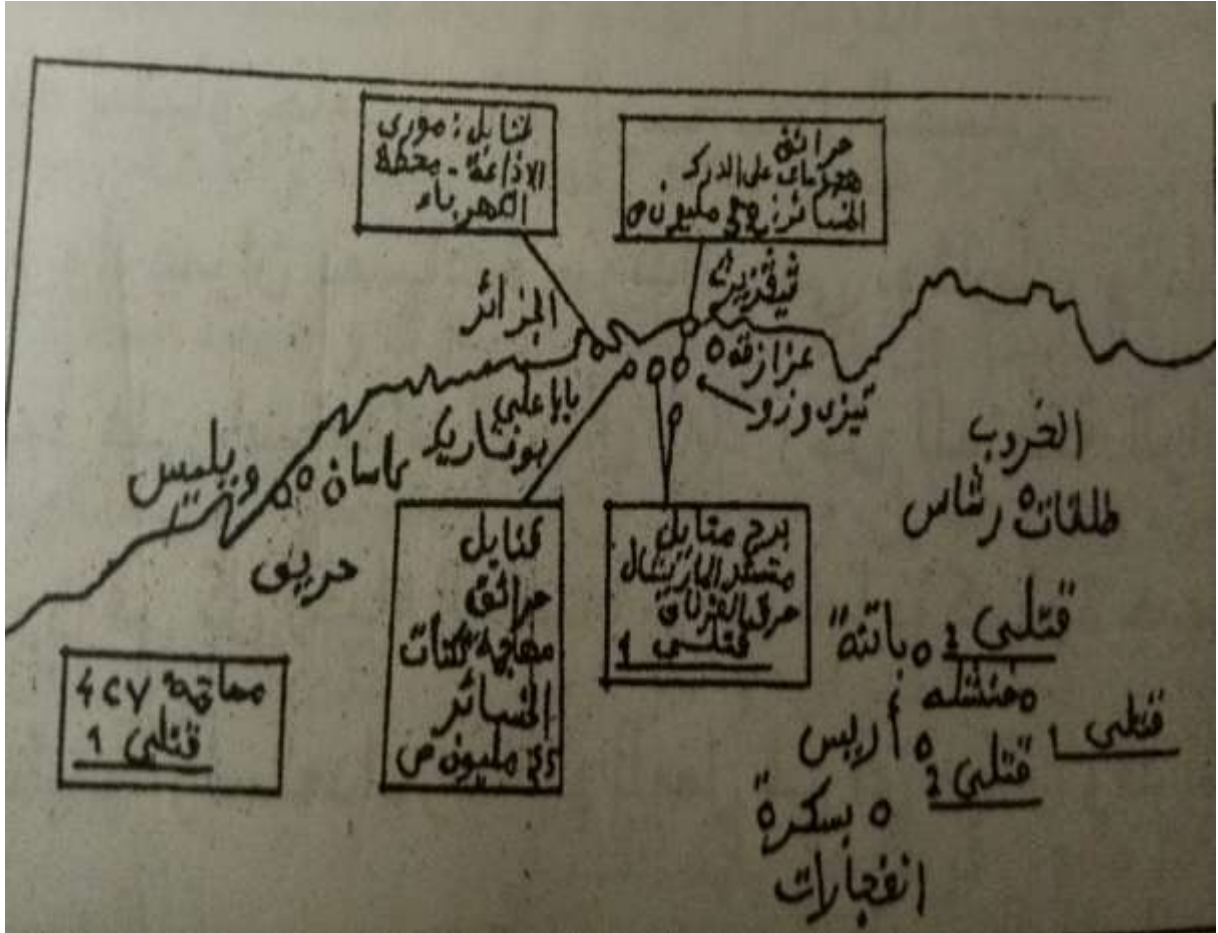 قنابل: موري
الإذاعة - محطة
الكهرباء
حرائق
هجومات على الدرك
الخسائر: مليون ص
الجزائر
تيقزيرت
عزازقة
تيزي وزو
بابا علي
بوفاريك
كاسان
ويليس
حريق
الخروب
طلقات رشاش
قنابل
حرائق
مهاجمة ثكنات
الخسائر
مليون ص
برج منايل
حرق الفرنان
قتلى 1
مهاجمة
قتلى 1
باتنة
قتلى 2
خنشلة
قتلى 1
أريس
قتلى 2
بسكرة
انفجارات